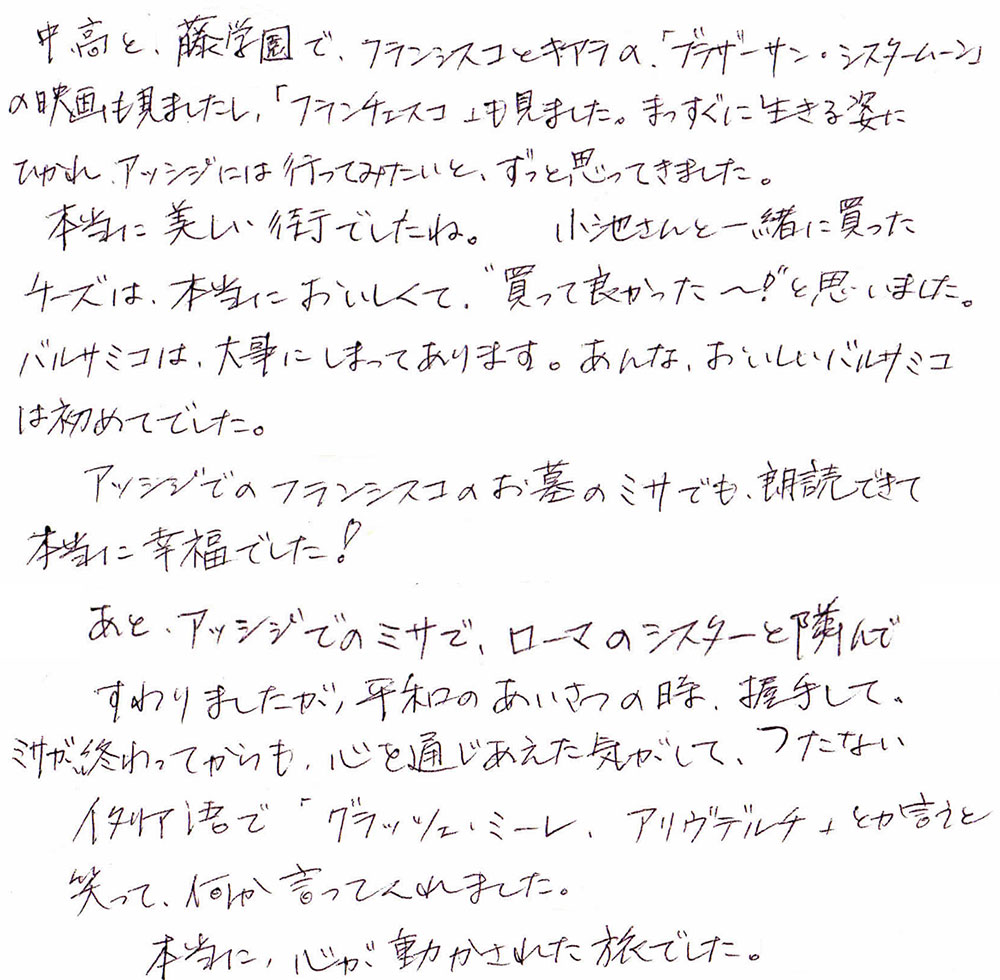 中高と、藤学園で、フランシスコとキアラの、「ブラザーサン・シスタームーン」
の映画も見ましたし、「フランチェスコ」も見ました。まっすぐに生きる姿に
ひかれ、アッシジには行ってみたいと、ずっと思ってきました。
本当に美しい街でしたね。 小池さんと一緒に買った
チーズは、本当においしくて、“買って良かった〜!”と思いました。
バルサミコは、大事にしまってあります。あんな、おいしいバルサミコ
は初めてでした。
アッシジでのフランシスコのお墓のミサでも、朗読できて
本当に幸福でした!
あと、アッシジでのミサで、ローマのシスターと隣んで
すわりましたが、平和のあいさつの時、握手して、
ミサが終わってからも、心を通じあえた気がして、つたない
イタリア語で「グラッツェ・ミーレ、アリヴデルチ」とか言うと
笑って、何か言ってくれました。
本当に、心が動かされた旅でした。